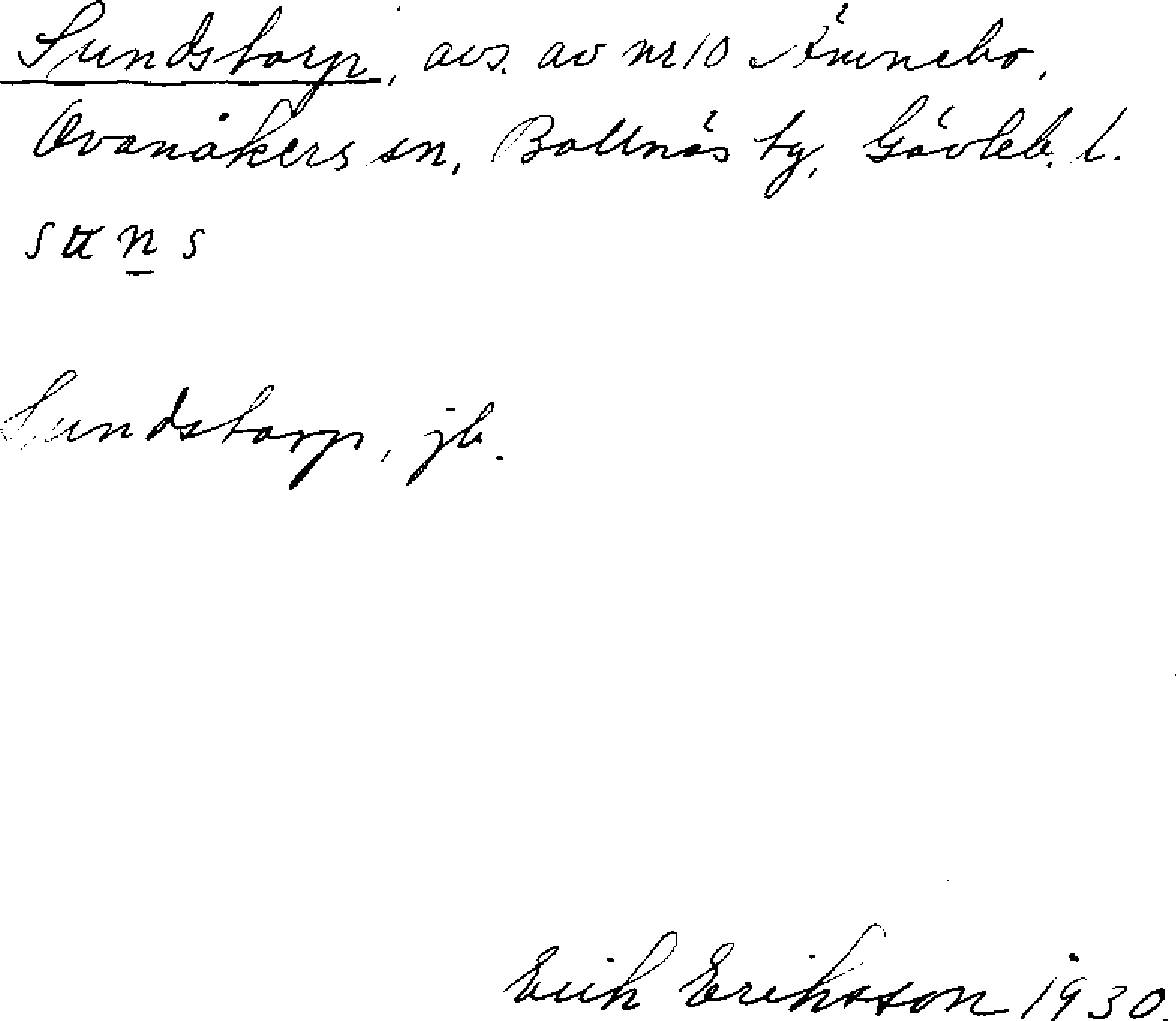 Sundstorp, avs. av nr 10 Ämnebo,
Ovanåkers sn, Bollnäs tg, Gävleb. l.
Sundstorp, jb.
Erik Eriksson 1930.